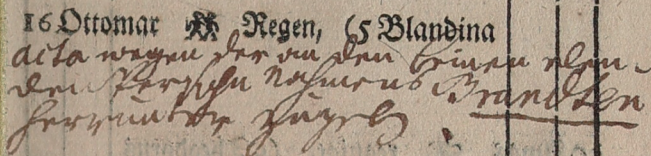 16 Ottomar Regen, 5 Blandina
acta wegen der an den beinen elen-
den Persohn Nahmens Brandten